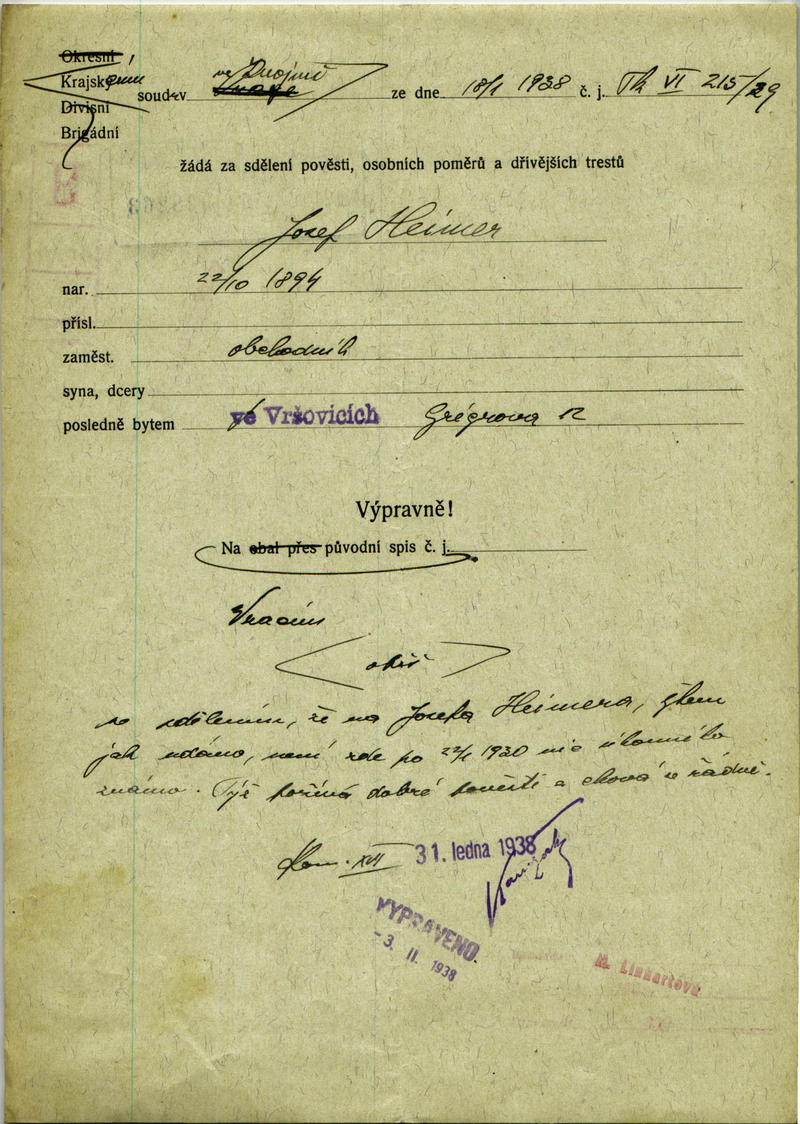 Okresní
Krajskému
Divisní
Brigádní
soud v ve Znojmě ze dne 18/1 1938 č. j. Tk VI 215/29
žádá za sdělení pověsti, osobních poměrů a dřívějších trestů
Josef Heimer
nar. 22/10 1894
přísl.
zaměst. obchodník
syna, dcery
posledně bytem ve Vršovicích Grégrova 12
Výpravně!
Na obal přes původní spis č. j.
Vracím
se sdělením, že na Josefa Heimera, jak udáno, není zde po 22/1 1930 nic úkonného
známo. Týž požívá dobré pověsti a chová se řádně.
Kom. XVII 31. ledna 1938
VYPRAVENO
-3. II. 1938
M. Linhartová